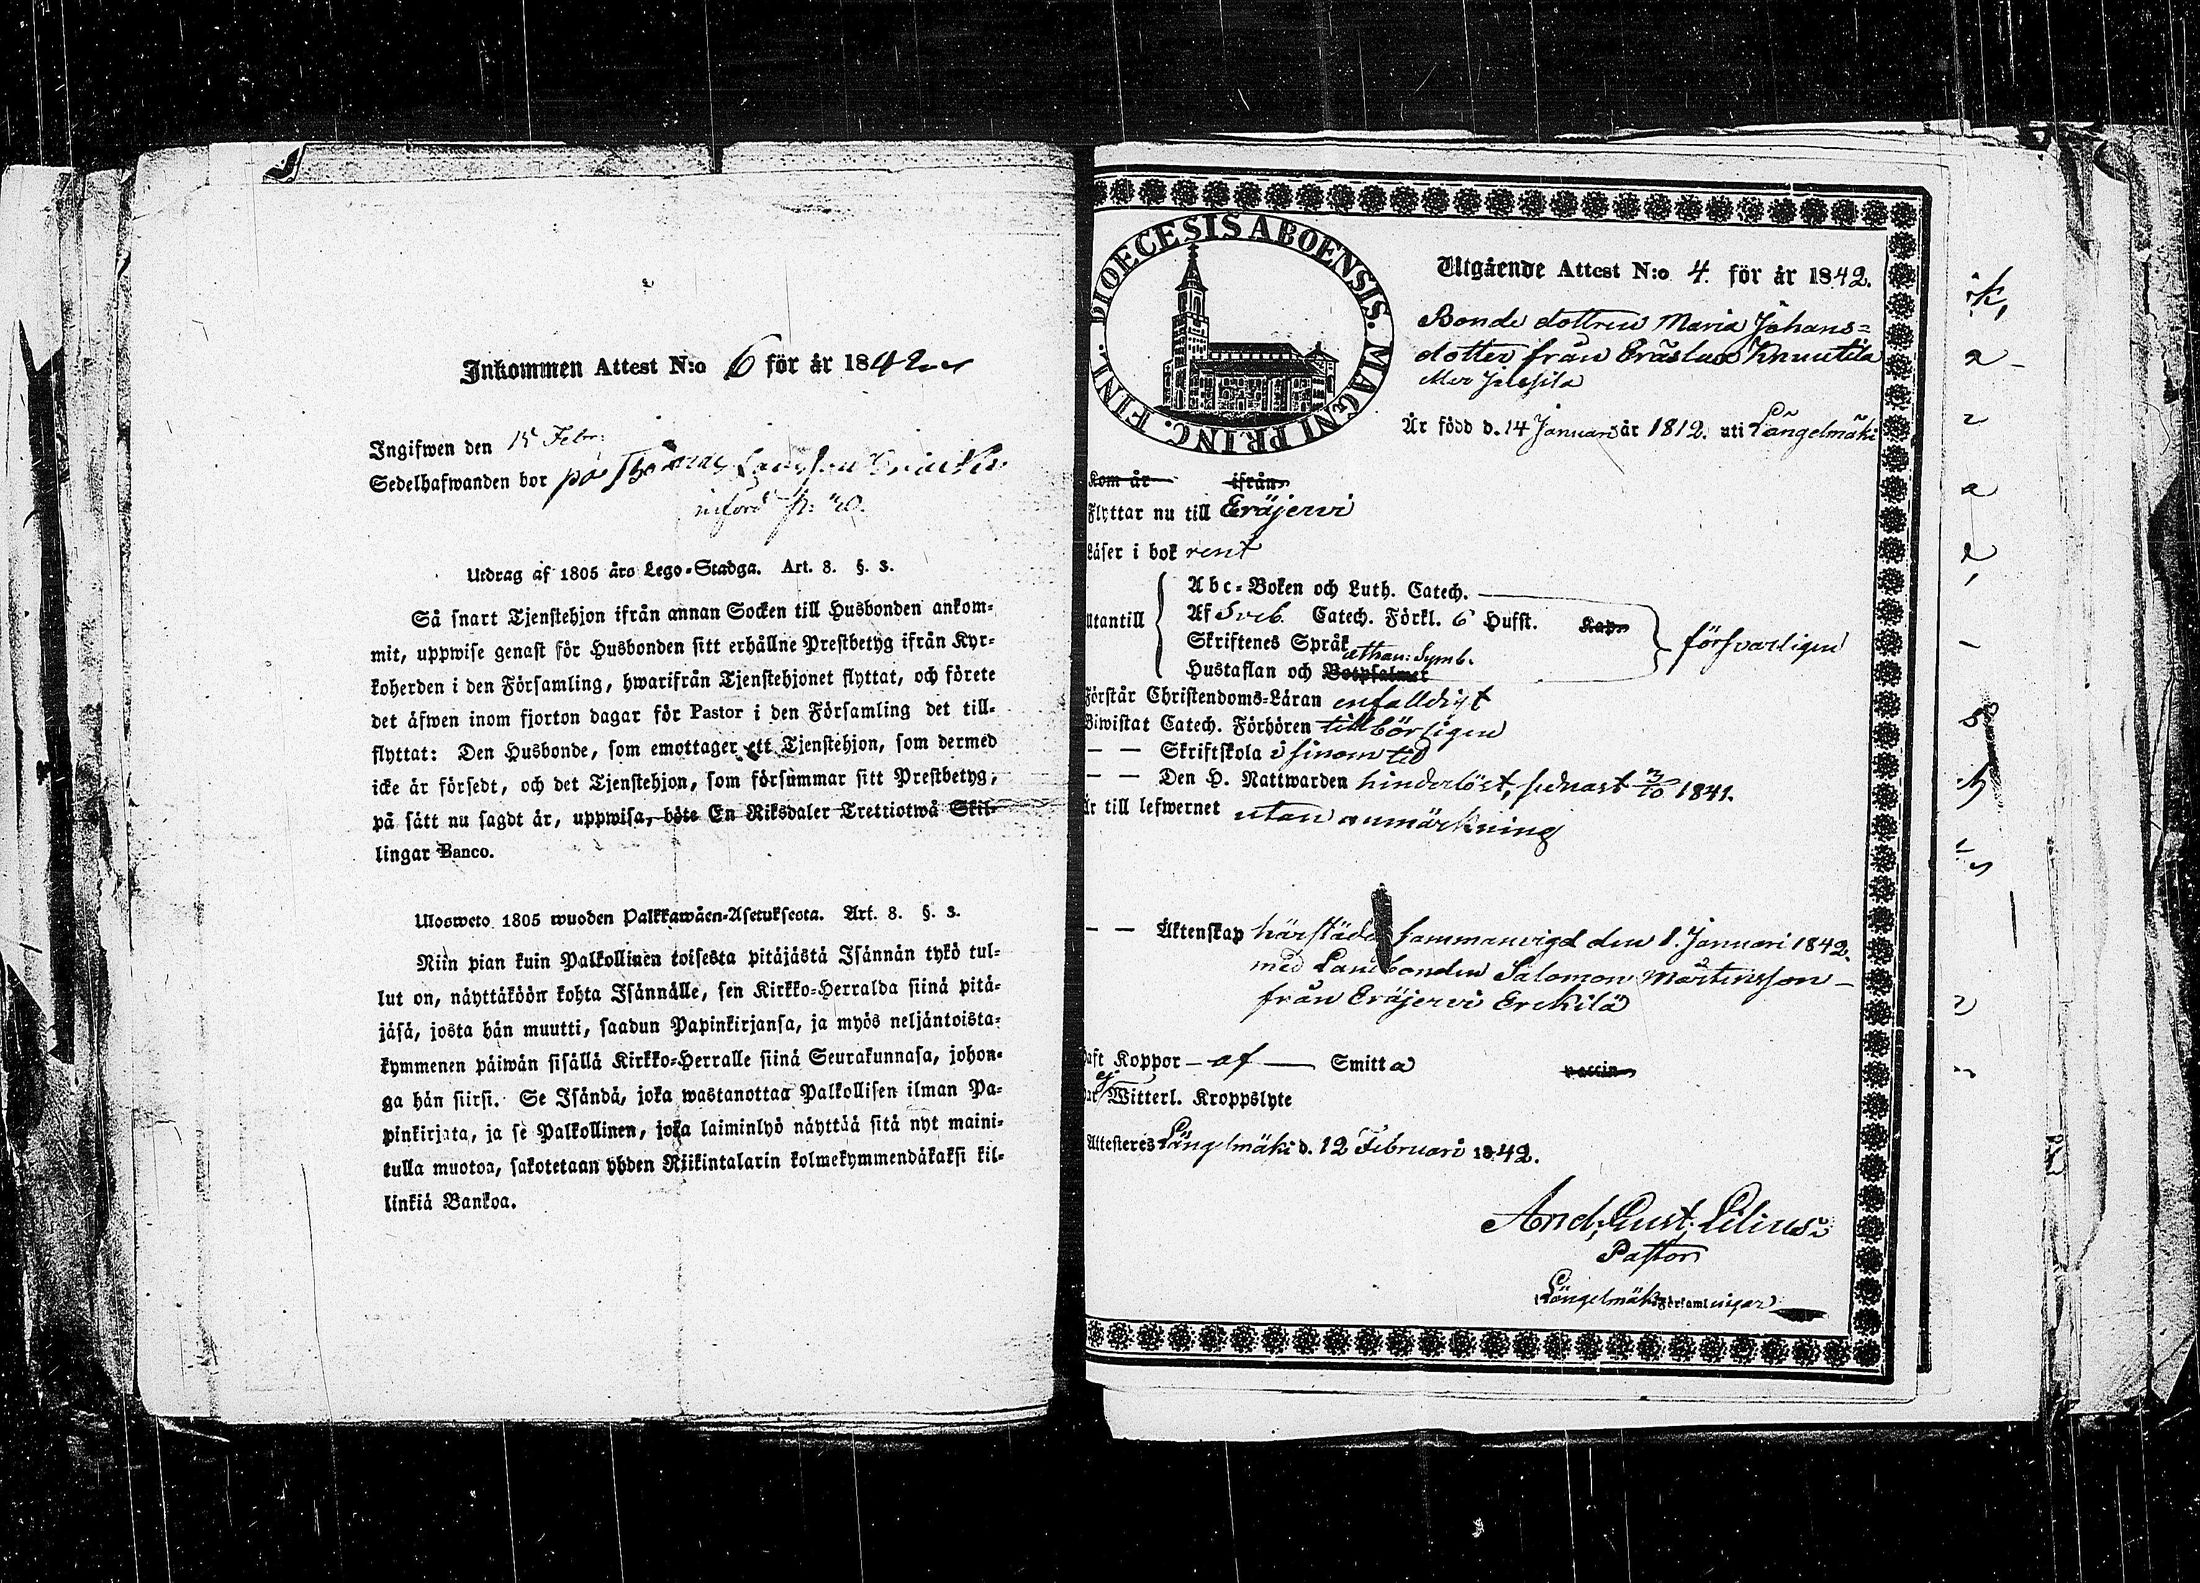 Inkommen Attest N:o 6 för år 1842
Ingifwen den 15 Febr:
Sedelhafwanden bor på
införd p:
Utdrag af 1805 års Lego-Stadga. Art. 8. §. 3.
Så snart Tjenstehjon ifrån annan Socken till Husbonden ankom-
mit, uppwise genast för Husbonden sitt erhållne Prestbetyg ifrån Kyr-
koherden i den Församling, hwarifrån Tjenstehjonet flyttat, och förete
det äfwen inom fjorton dagar för Pastor i den Församling det till-
flyttat: Den Husbonde, som emottager ett Tjenstehjon, som dermed
icke är försedt, och det Tjenstehjon, som försummar sitt Prestbetyg,
på sätt nu sagdt är, uppwisa, böte En Riksdaler Trettiotwå Skil-
lingar Banco.
Ulosweto 1805 wuoden Palkkawäen-Asetuksesta. Art. 8. §. 3.
Niin pian kuin Palkollinen toisesta pitäjästä Isännän tykö tul-
lut on, näyttäköön kohta Isännälle, sen Kirkko-Herralda siinä pitä-
jäsä, josta hän muutti, saadun Papinkirjansa, ja myös neljäntoista-
kymmenen päiwän sisällä Kirkko-Herralle siinä Seurakunnasa, johon-
ga hän siirsi. Se Isändä, joka wastanottaa Palkollisen ilman Pa-
pinkirjata, ja se Palkollinen, joka laiminlyö näyttää sitä nyt maini-
tulla muotoa, sakotetaan yhden Riikintalarin kolmekymmendäkaksi kil-
linkiä Bankoa.
DIOECESIS ABOENSIS. MAGNI PRINC. FINL.
Utgående Attest N:o 4. för år 1842.
Bonde dottren Maria Johans=
dotter från Eräslax Knuutila
Är född d. 14 Januari år 1812. uti Längelmäki
Kom år ifrån
Flyttar nu till Eräjervi
Läser i bok rent
Abc-Boken och Luth. Catech.
Utantill Af Sveb. Catech. Förkl. 6 Hufst. Kap. försvarligen
Skriftenes Språk Athan: Symb.
Hustaflan och Botpsalmer
Förstår Christendoms-Läran enfalldigt
Biwistat Catech. Förhören tillbörligen
— — Skriftskola i sinom tid
— — Den H. Nattwarden hinderlöst, sednast 3/10 1841.
Är till lefwernet utan anmärkning
— — Äktenskap härstädes sammanvigd den 1. Januari 1842.
med Landbonden Salomon Mårtensson
från Eräjervi Erkilä
Haft Koppor — af — Smitta vaccin
Har ej Witterl. Kroppslyte
Attesteres Längelmäki d. 12 Februari 1842.
And. Gust. Lilius
Pastor
Längelmäki Församlingar